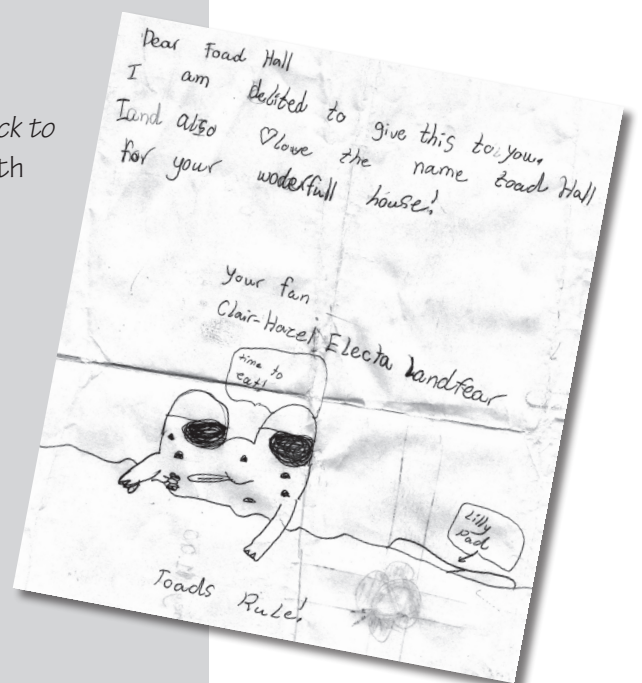 ck to
th
Dear Foad Hall
I am delited to give this to you.
I and also ♡love the name toad Hall
for your woderfull house!
your fan
Clair-Hazel Electa Landfear
time to
eat!
Lilly
Pad
Toads Rule!